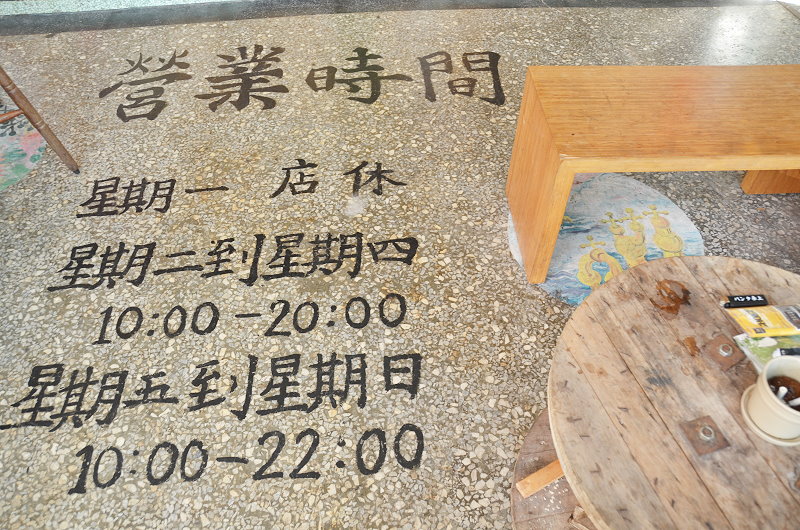 營業時間
星期一 店休
星期二到星期四
10:00-20:00
星期五到星期日
10:00-22:00